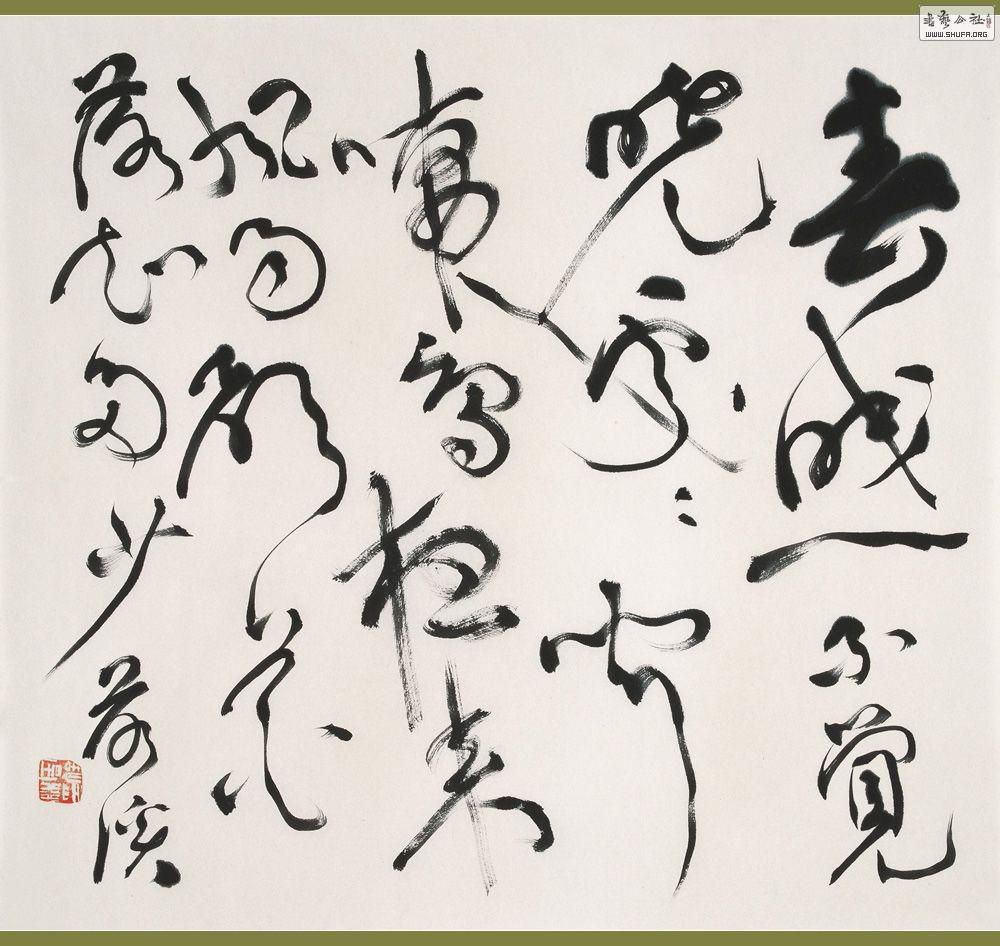 春眠不覺
曉處々聞
啼鳥夜来
風雨聲花
落知多少
書藝公社
WWW.SHUFA.ORG